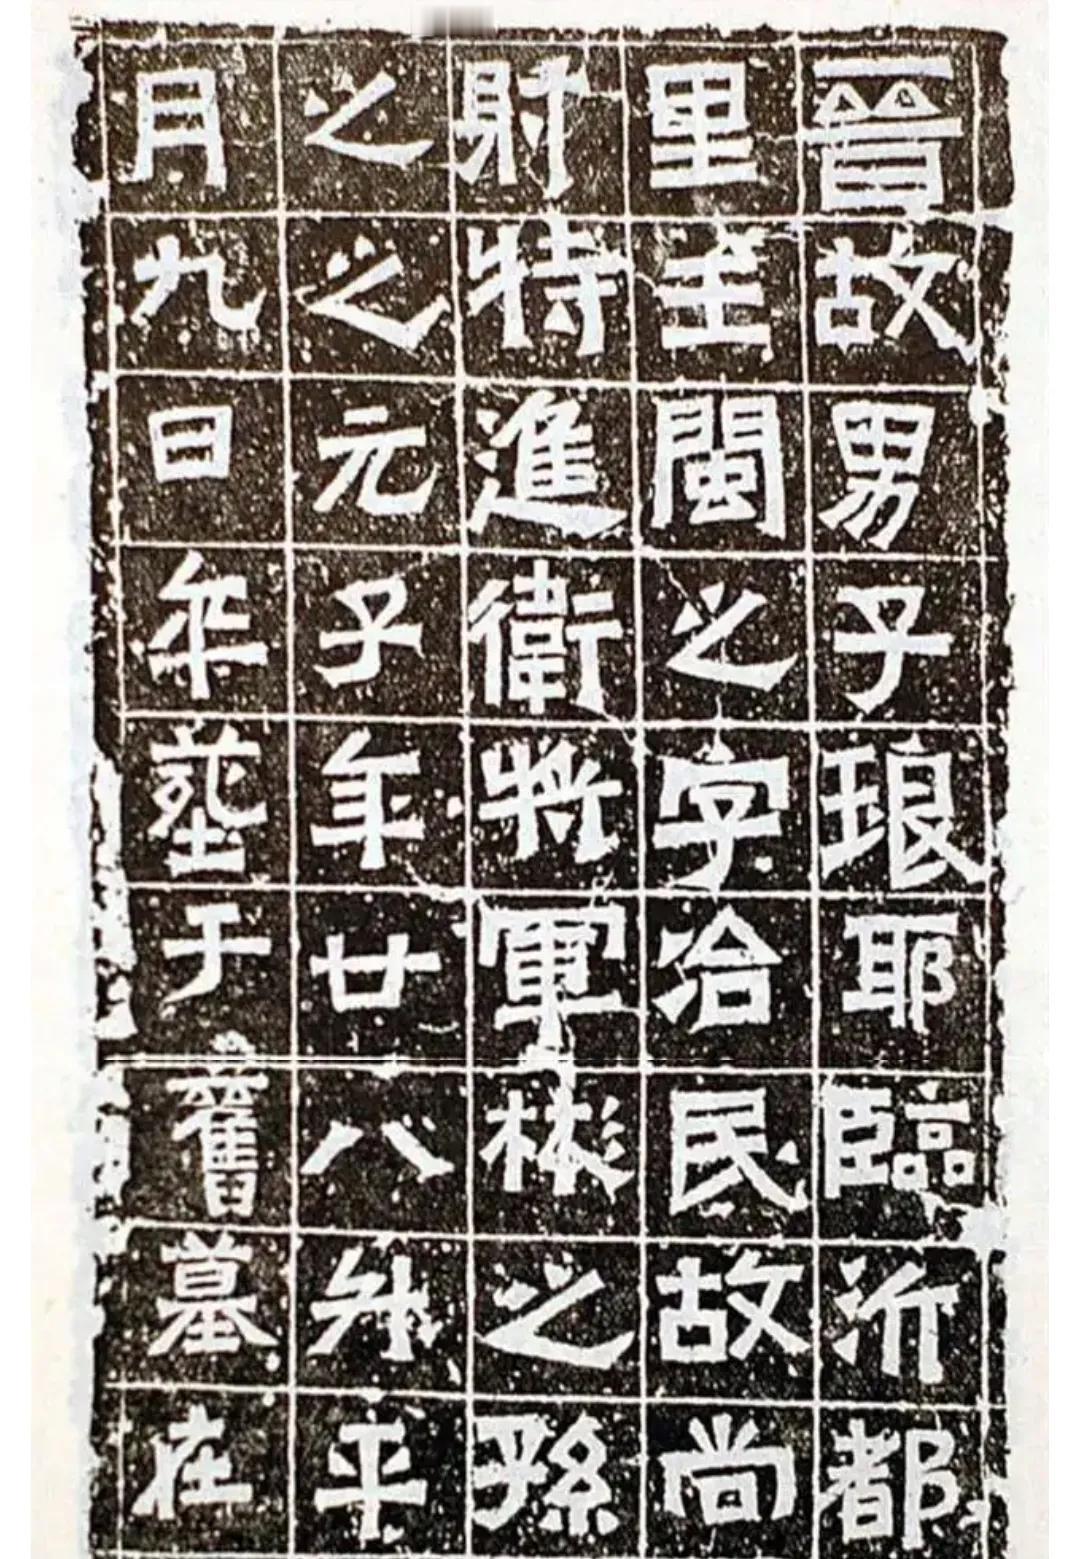 晉故男子琅耶臨沂都
里王閩之字冶民故尚
射特進衛將軍彬之孫
之之元子年廿八升平
月九日卒葬于舊墓在